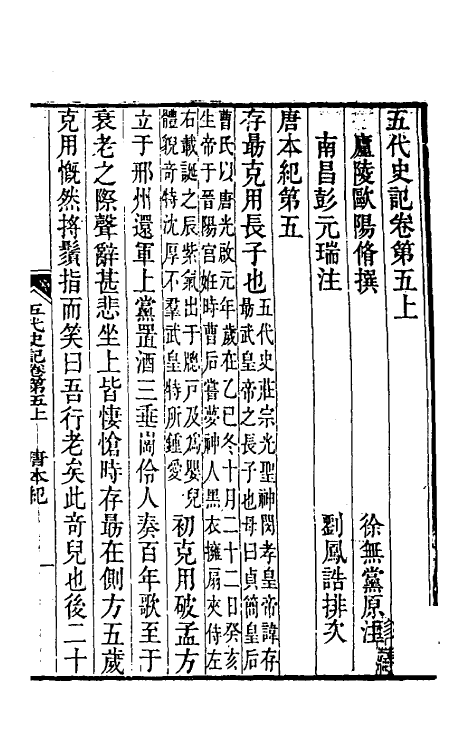 五代史記卷第五上
廬陵歐陽脩撰 徐無黨原注
南昌彭元瑞注 劉鳳誥排次
唐本紀第五
存勗克用長子也
五代史莊宗光聖神閔孝皇帝諱存
勗武皇帝之長子也母曰貞簡皇后
曹氏以唐光啟元年歲在乙巳冬十月二十二日癸亥
生帝于晉陽宮姙時曹后嘗夢神人黑衣擁扇夾侍左
右載誕之辰紫氣出于牕戸及爲嬰兒
體貌奇特沈厚不羣武皇特所鍾愛
初克用破孟方
立于邢州還軍上黨置酒三垂崗伶人奏百年歌至于
衰老之際聲辭甚悲坐上皆悽愴時存勗在側方五歲
克用慨然捋鬚指而笑曰吾行老矣此奇兒也後二十
五代史記卷第五上 唐本紀 一